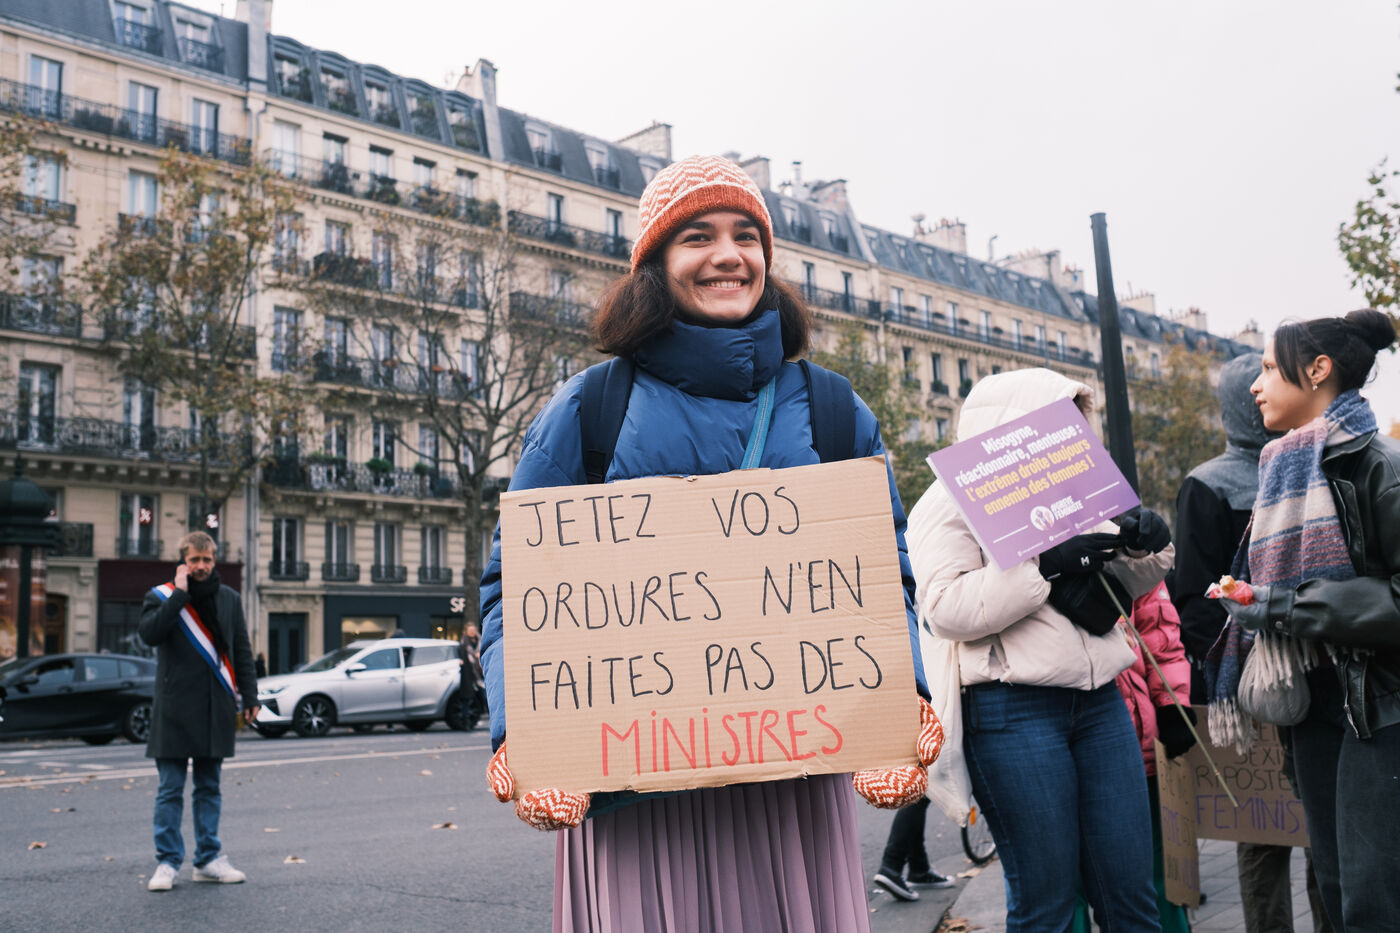 JETEZ VOS
ORDURES N'EN
FAITES PAS DES
MINISTRES
Misogyne,
réactionnaire, menteuse :
l'extrême droite toujours
ennemie des femmes !
FÉMINISTE
SEXI
RIPOSTE
FEMINIS
SF